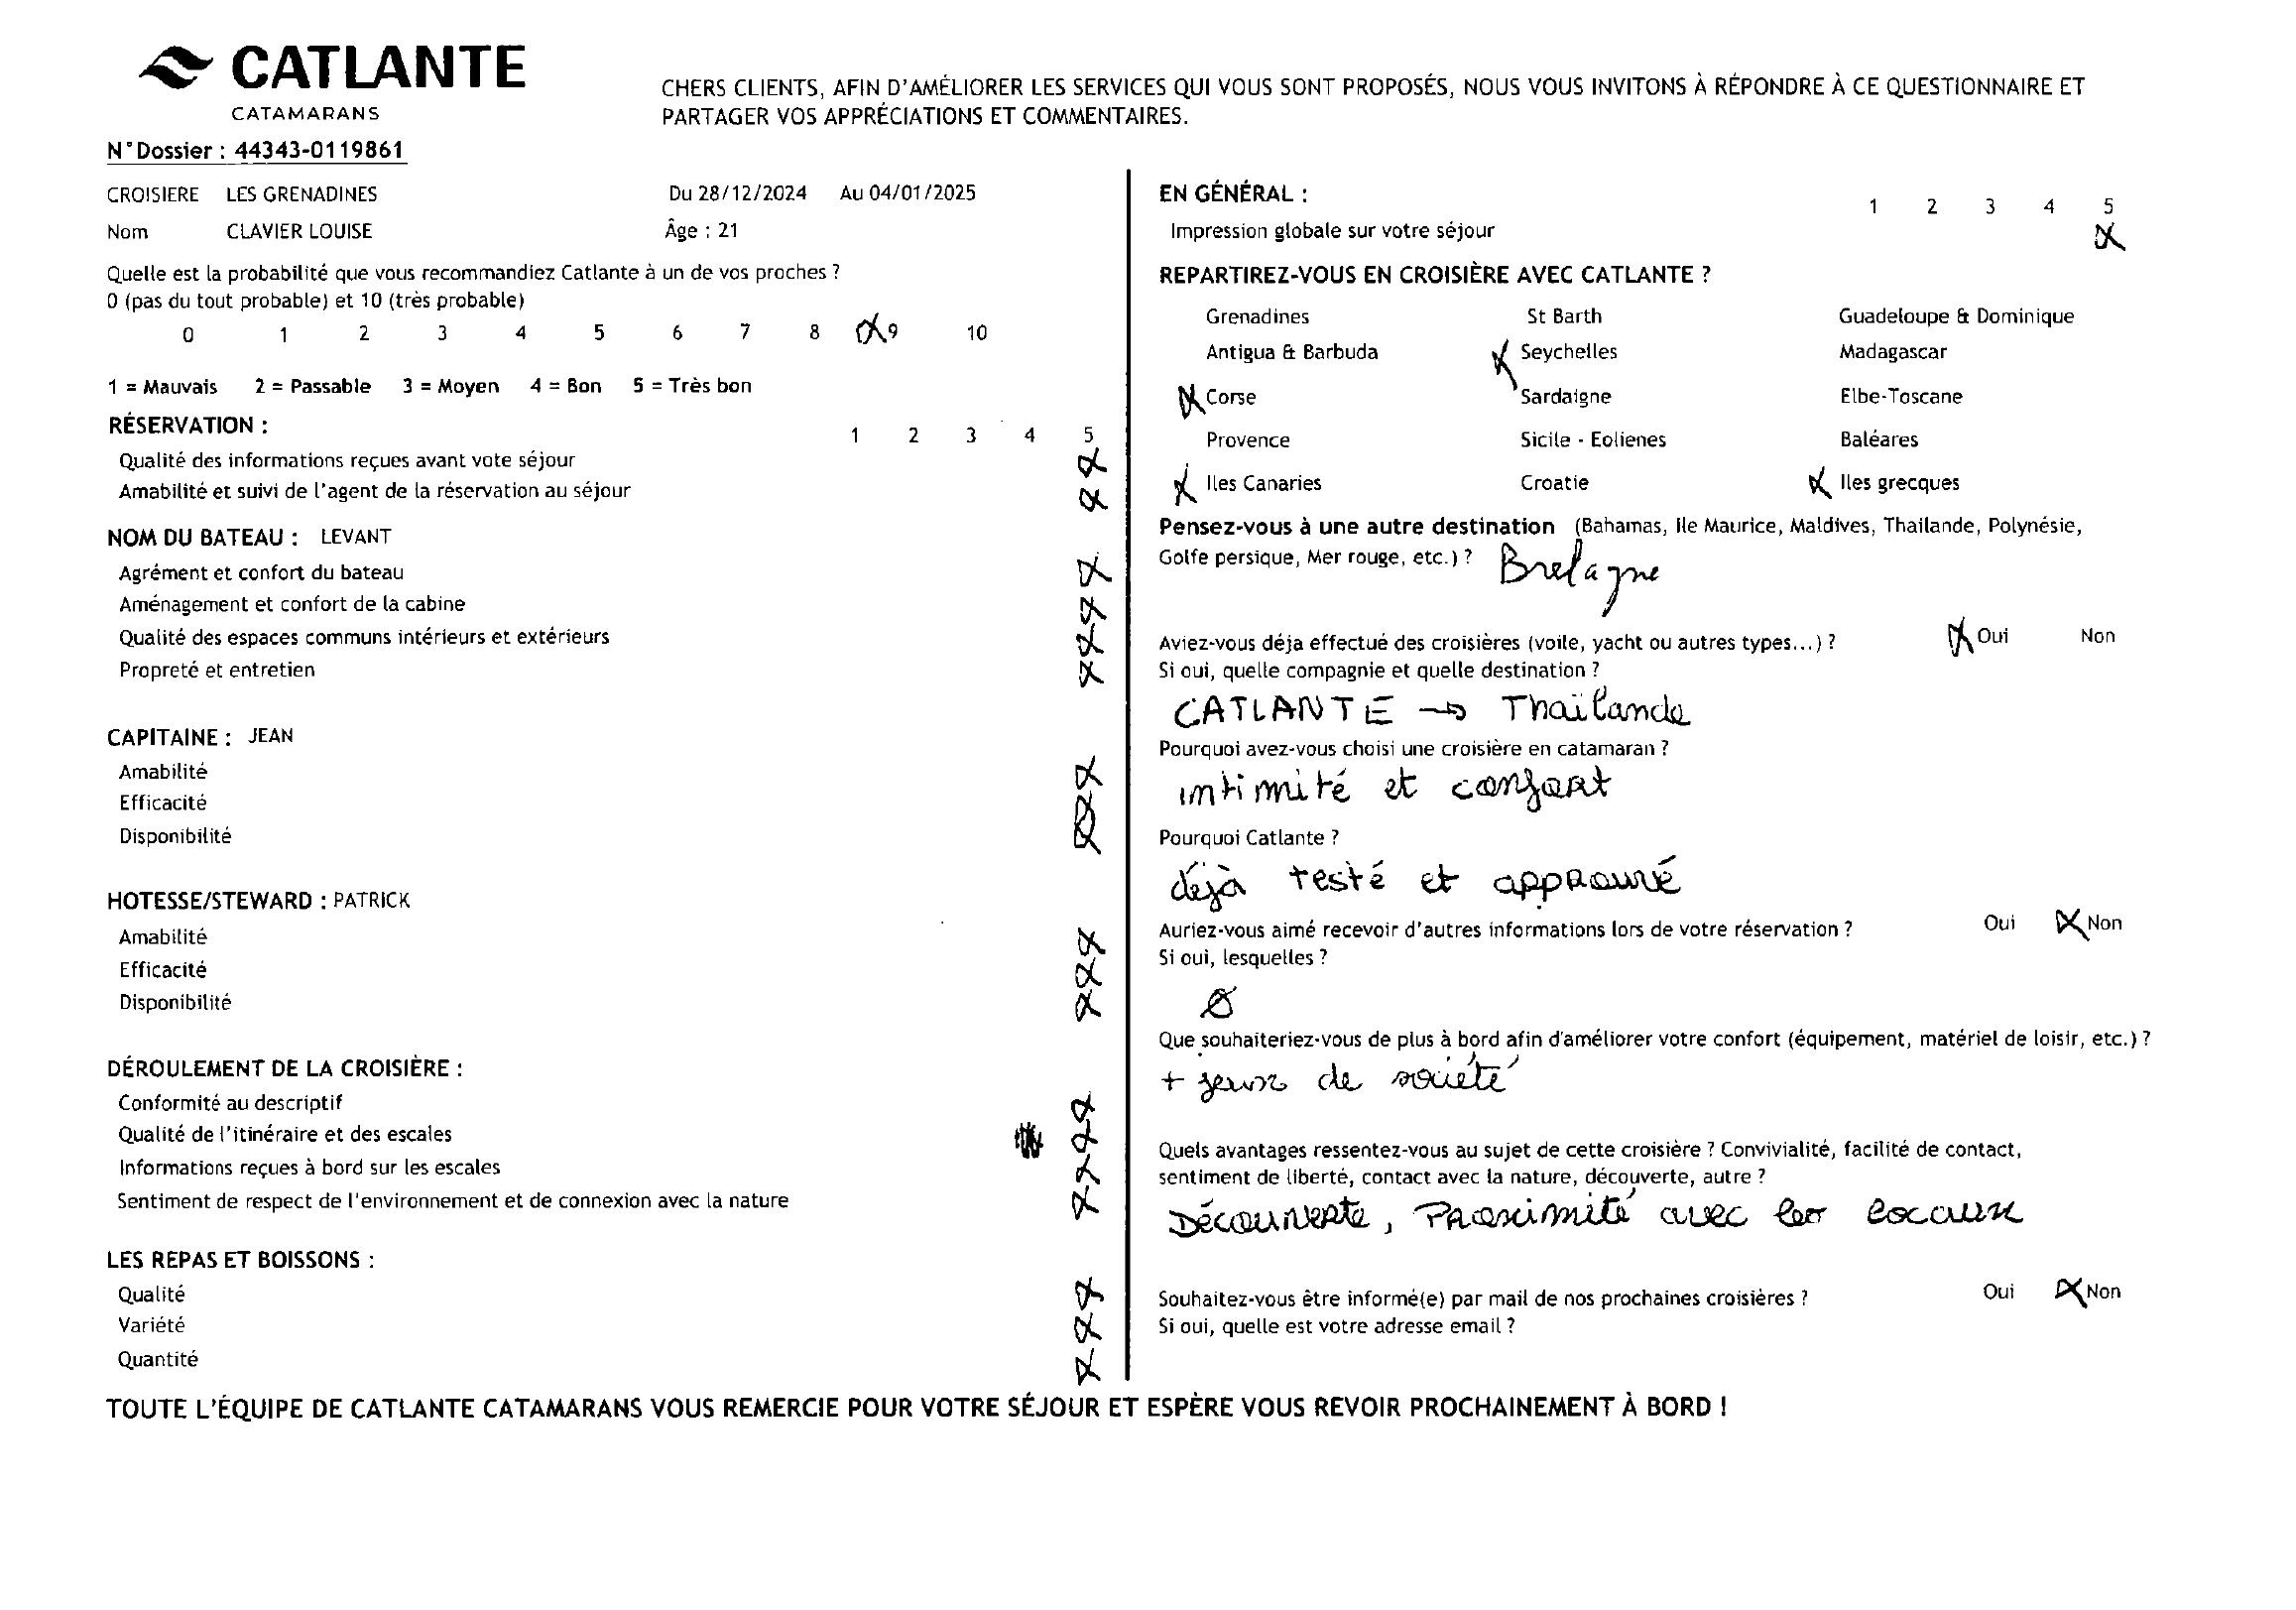 CATLANTE
CATAMARANS
CHERS CLIENTS, AFIN D'AMÉLIORER LES SERVICES QUI VOUS SONT PROPOSÉS, NOUS VOUS INVITONS À RÉPONDRE À CE QUESTIONNAIRE ET
PARTAGER VOS APPRÉCIATIONS ET COMMENTAIRES.
N°Dossier : 44343-0119861
CROISIERE LES GRENADINES Du 28/12/2024 Au 04/01/2025
Nom CLAVIER LOUISE Âge : 21
Quelle est la probabilité que vous recommandiez Catlante à un de vos proches ?
0 (pas du tout probable) et 10 (très probable)
0 1 2 3 4 5 6 7 8 9 10
1 = Mauvais 2 = Passable 3 = Moyen 4 = Bon 5 = Très bon
RÉSERVATION :
1 2 3 4 5
Qualité des informations reçues avant vote séjour
Amabilité et suivi de l'agent de la réservation au séjour
NOM DU BATEAU : LEVANT
Agrément et confort du bateau
Aménagement et confort de la cabine
Qualité des espaces communs intérieurs et extérieurs
Propreté et entretien
CAPITAINE : JEAN
Amabilité
Efficacité
Disponibilité
HOTESSE/STEWARD : PATRICK
Amabilité
Efficacité
Disponibilité
DÉROULEMENT DE LA CROISIÈRE :
Conformité au descriptif
Qualité de l'itinéraire et des escales
Informations reçues à bord sur les escales
Sentiment de respect de l'environnement et de connexion avec la nature
LES REPAS ET BOISSONS :
Qualité
Variété
Quantité
EN GÉNÉRAL :
1 2 3 4 5
Impression globale sur votre séjour
REPARTIREZ-VOUS EN CROISIÈRE AVEC CATLANTE ?
Grenadines St Barth Guadeloupe & Dominique
Antigua & Barbuda Seychelles Madagascar
Corse Sardaigne Elbe-Toscane
Provence Sicile - Eolienes Baléares
Iles Canaries Croatie Iles grecques
Pensez-vous à une autre destination (Bahamas, Ile Maurice, Maldives, Thailande, Polynésie,
Golfe persique, Mer rouge, etc.) ? Bretagne
Aviez-vous déja effectué des croisières (voile, yacht ou autres types...) ? Oui Non
Si oui, quelle compagnie et quelle destination ?
CATLANTE → Thaïlande
Pourquoi avez-vous choisi une croisière en catamaran ?
intimité et confort
Pourquoi Catlante ?
déjà testé et approuvé
Auriez-vous aimé recevoir d'autres informations lors de votre réservation ? Oui Non
Si oui, lesquelles ?
Ø
Que souhaiteriez-vous de plus à bord afin d'améliorer votre confort (équipement, matériel de loisir, etc.) ?
+ jeux de société
Quels avantages ressentez-vous au sujet de cette croisière ? Convivialité, facilité de contact,
sentiment de liberté, contact avec la nature, découverte, autre ?
Découverte, Proximité avec les locaux
Souhaitez-vous être informé(e) par mail de nos prochaines croisières ? Oui Non
Si oui, quelle est votre adresse email ?
TOUTE L'ÉQUIPE DE CATLANTE CATAMARANS VOUS REMERCIE POUR VOTRE SÉJOUR ET ESPÈRE VOUS REVOIR PROCHAINEMENT À BORD !